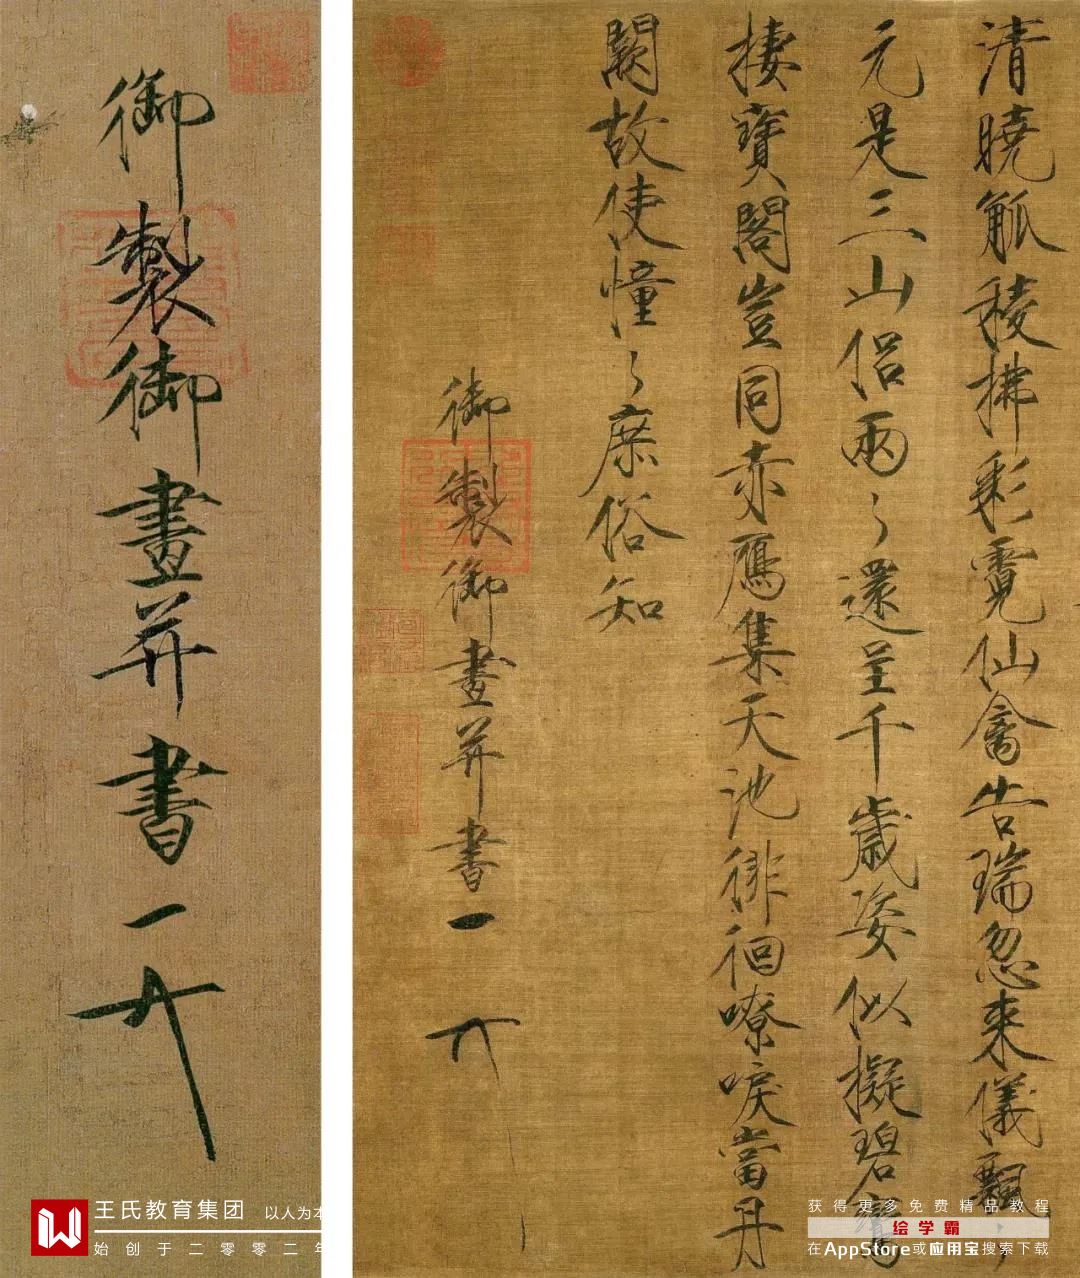 清曉觚稜拂彩霓仙禽告瑞忽来儀飄々
元是三山侣兩々還呈千歳姿似擬碧鸞
棲寳閣豈同赤鴈集天池徘徊嘹唳當丹
闕故使憧々庶俗知
御製御畫并書一
御製御畫并書一
王氏教育集团 以人为本
始创于二零零二年
获得更多免费精品教程
绘学霸
在AppStore或应用宝搜索下载